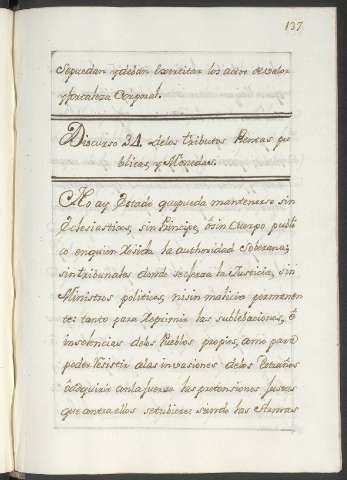 137
Sepuedan y deban Exercitar los actos de valor
y fortaleza Corporal.
Discurso 34 delos tributos Rentas pu
blicas, y Monedas.
No ay Estado quepueda mantenerse sin
Eclesiasticos, sin Principe, ó sin Cuerpo publi
co enquien Resida la authoridad Soberana;
sin tribunales donde se exerza la Justicia, sin
Ministros politicos, ni sin milicia permanen
te: tanto para Reprimir las sublebaciones, é
insolencias delos Pueblos propios, como para
poder Resistir alas invasiones delos Estraños
ó adquirir con la fuerza las pretensiones Justas
que contra ellos se tubiere: siendo las Armas